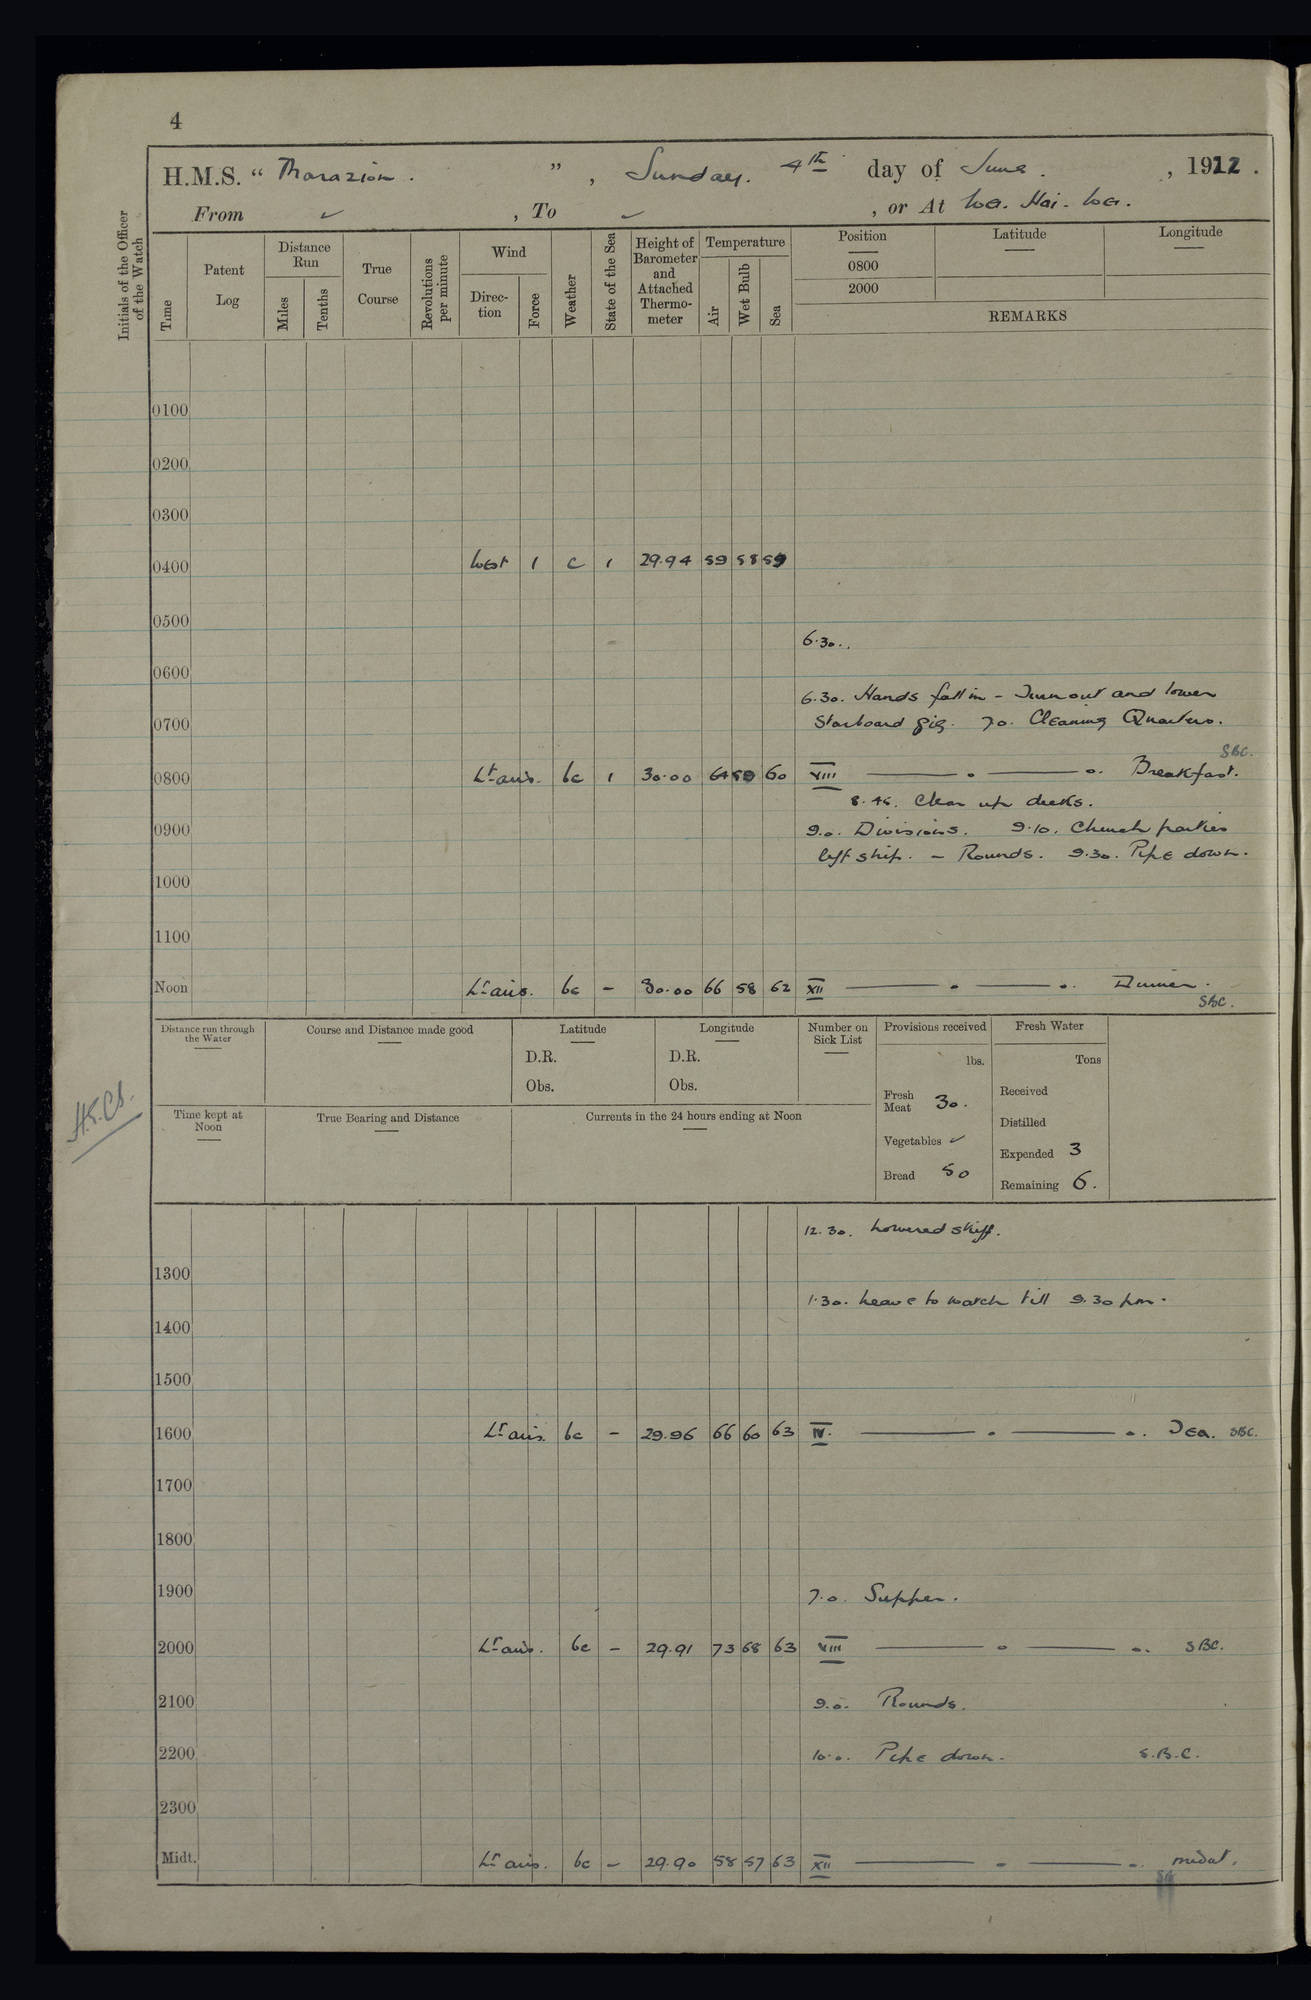 4
H.M.S. " Marazion. ", Sunday. 4th day of June. , 1922.
From ✓ , To ✓ , or At Wei. Hai. Wei.
Initials of the Officer of the Watch
Time
Patent Log
Distance Run
Miles
Tenths
True Course
Revolutions per minute
Wind
Direction
Force
Weather
State of the Sea
Height of Barometer and Attached Thermometer
Temperature
Air
Wet Bulb
Sea
Position
0800
2000
Latitude
Longitude
REMARKS
0100
0200
0300
0400 West 1 c 1 29.94 59 58 59
0500
6.30..
0600
6.30. Hands fall in - Turn out and lower
0700 Starboard gig. 7.0. Cleaning Quarters.
SBC.
0800 Lt airs. bc 1 30.00 64 59 60 VIII Breakfast.
8.45. Clear up decks.
0900 9.0. Divisions. 9.10. Church parties
left ship. - Rounds. 9.30. Pipe down.
1000
1100
Noon Lt airs. bc - 30.00 66 58 62 XII Dinner.
SBC.
Distance run through the Water
Course and Distance made good
Latitude
D.R.
Obs.
Longitude
D.R.
Obs.
Number on Sick List
Provisions received
lbs.
Fresh Meat 30.
Vegetables ✓
Bread 50
Fresh Water
Tons
Received
Distilled
Expended 3
Remaining 6.
Time kept at Noon
True Bearing and Distance
Currents in the 24 hours ending at Noon
12.30. Lowered skiff.
1300
1.30. Leave to watch till 9.30 pm.
1400
1500
1600 Lt airs. bc - 29.96 66 60 63 IV. Tea. SBC.
1700
1800
1900 7.0. Supper.
2000 Lt airs. bc - 29.91 73 68 63 VIII SBC.
2100 9.0. Rounds.
2200 10.0. Pipe down. S.B.C.
2300
Midt. Lt airs. bc - 29.90 58 57 63 XII midt.